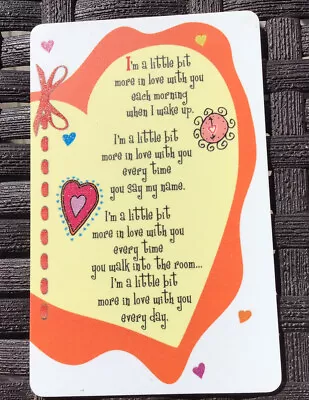 I'm a little bit
more in love with you
each morning
when I wake up.
I'm a little bit
more in love with you
every time
you say my name.
I'm a little bit
more in love with you
every time
you walk into the room...
I'm a little bit
more in love with you
every day.